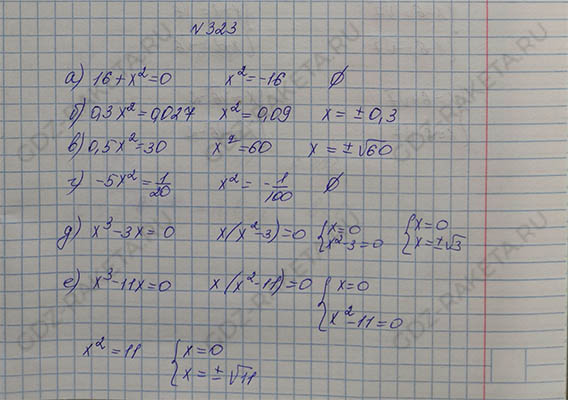 №323
а) 16+x²=0 x²=-16 ∅
б) 0,3x²=0,027 x²=0,09 x=±0,3
в) 0,5x²=30 x²=60 x=±√60
г) -5x²=1/20 x²=-1/100 ∅
д) x³-3x=0 x(x²-3)=0 {x=0 x²-3=0 {x=0 x=±√3
е) x³-11x=0 x(x²-11)=0 {x=0 x²-11=0
x²=11 {x=0 x=±√11
GDZ-RAKETA.RU
GDZ-RAKETA.RU
GDZ-RAKETA.RU
GDZ-RAKETA.RU